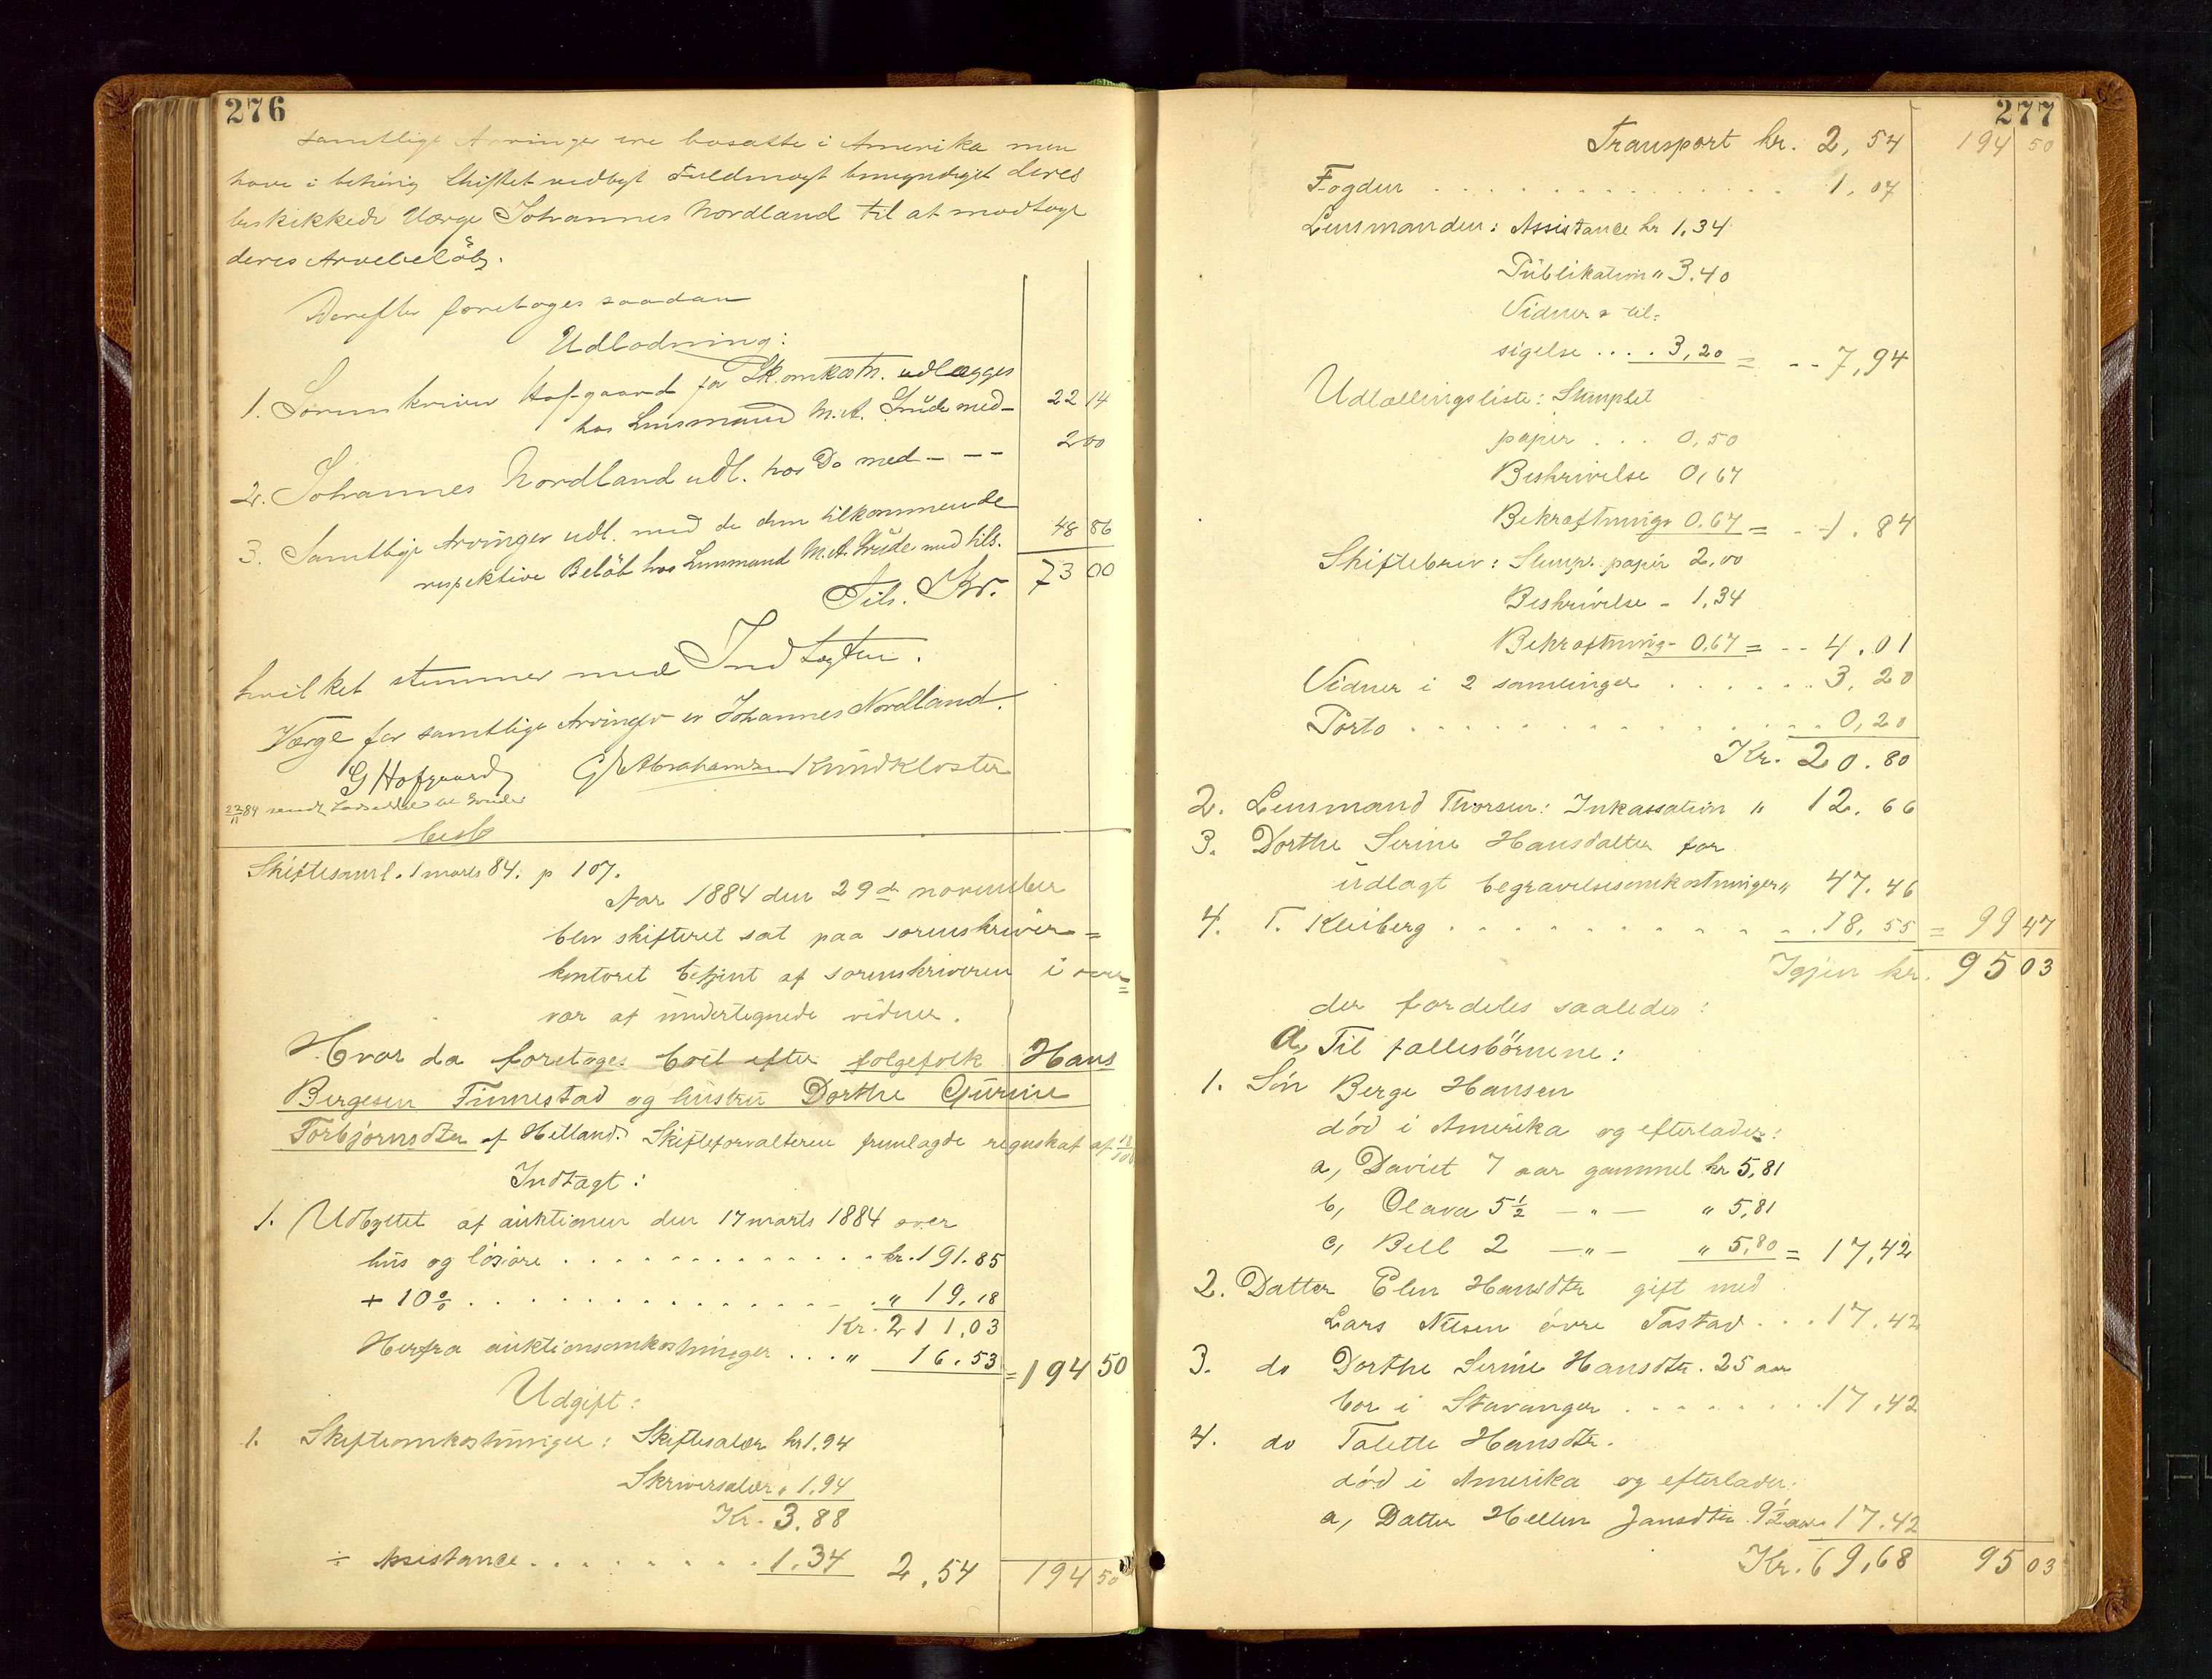 276
samtlige Arvinger ere bosatte i Amerika men
have i behørig Skiftet vedbyt Fuldmagt bemyndiget deres
beskikkede Værge Johannes Nordland til at modtage
deres Arvebeløb.
Derefter foretages saadan
Udlodning:
1. Sorenskriver Hofgaard for Sk.omkostn. udlægges
hos Lensmand M.A. Grude med 22 14
2. Johannes Nordland udl. hos Do med - - - 2 00
3. Samtlige Arvinger udl. med de dem tilkommende
respektive Beløb hos Lensmand M.A. Grude med tils. 48 86
Tils. Kr. 73 00
hvilket stemmer med Indtægten.
Værge for samtlige Arvinger er Johannes Nordland.
G Hofgaard G E Abrahamsen Knud Kloster
Skiftesaml. 1 marts 84. p 107.
Aar 1884 den 29de november
blev skifteret sat paa sorenskriver=
kontoret betjent af sorenskriveren i over=
vær af undertegnede vidner.
Hvor da foretages boet efter følgefolk Hans
Bergesen Finnestad og hustru Dorthe Gurine
Torbjørnsdtr af Hetland. Skifteforvalteren fremlagde regnskab af 18/10
Indtægt:
1. Udbyttet af auktionen den 17 marts 1884 over
hus og løsøre . . . . kr. 191.85
+ 10% . . . . " 19,18
Kr. 211,03
Herfra auktionsomkostninger . . . " 16.53 = 194 50
Udgift:
1. Skifteomkostninger: Skiftesalær kr 1.94
Skriversalær " 1.94
Kr. 3.88
÷ Assistance . . . . 1.34 2,54 194 50
277
Transport kr. 2,54 194 50
Fogden . . . . 1,07
Lensmanden: Assistance kr 1.34
Publikation " 3.40
Vidner & til=
sigelse . . . . 3,20 = - - 7,94
Udlællingsliste: Stemplet
papir . . . 0,50
Beskrivelse 0,67
Bekræftning 0.67 = - 1.84
Skiftebrev: Stemp. papir 2,00
Beskrivelse - 1,34
Bekræftning - 0.67 = - - 4.01
Vidner i 2 samlinger . . . . 3,20
Porto . . . . 0,20
Kr. 20.80
2. Lensmand Thorsen: Inkassation " 12.66
3. Dorthe Serine Hansdatter for
udlagt begravelsesomkostninger " 47.46
4. T. Kleiberg . . . . 18,55 = 99 47
Igjen kr. 95 03
der fordeles saaledes:
A, Til fællesbørnene:
1. Søn Berge Hansen
død i Amerika og efterlader:
a, Daviet 7 aar gammel kr 5,81
b, Olava 5½ — " — " 5,81
c, Bell 2 — " — " 5,80 = 17,42
2. Datter Elen Hansdtr gift med
Lars Nilsen øvre Tastad . . . 17,42
3. do Dorthe Serine Hansdtr. 25 aar
bor i Stavanger . . . . 17,42
4. do Talette Hansdtr.
død i Amerika og efterlader:
a, Datter Hellen Jansdtr. 9½ aar 17.42
Kr. 69,68 95 03